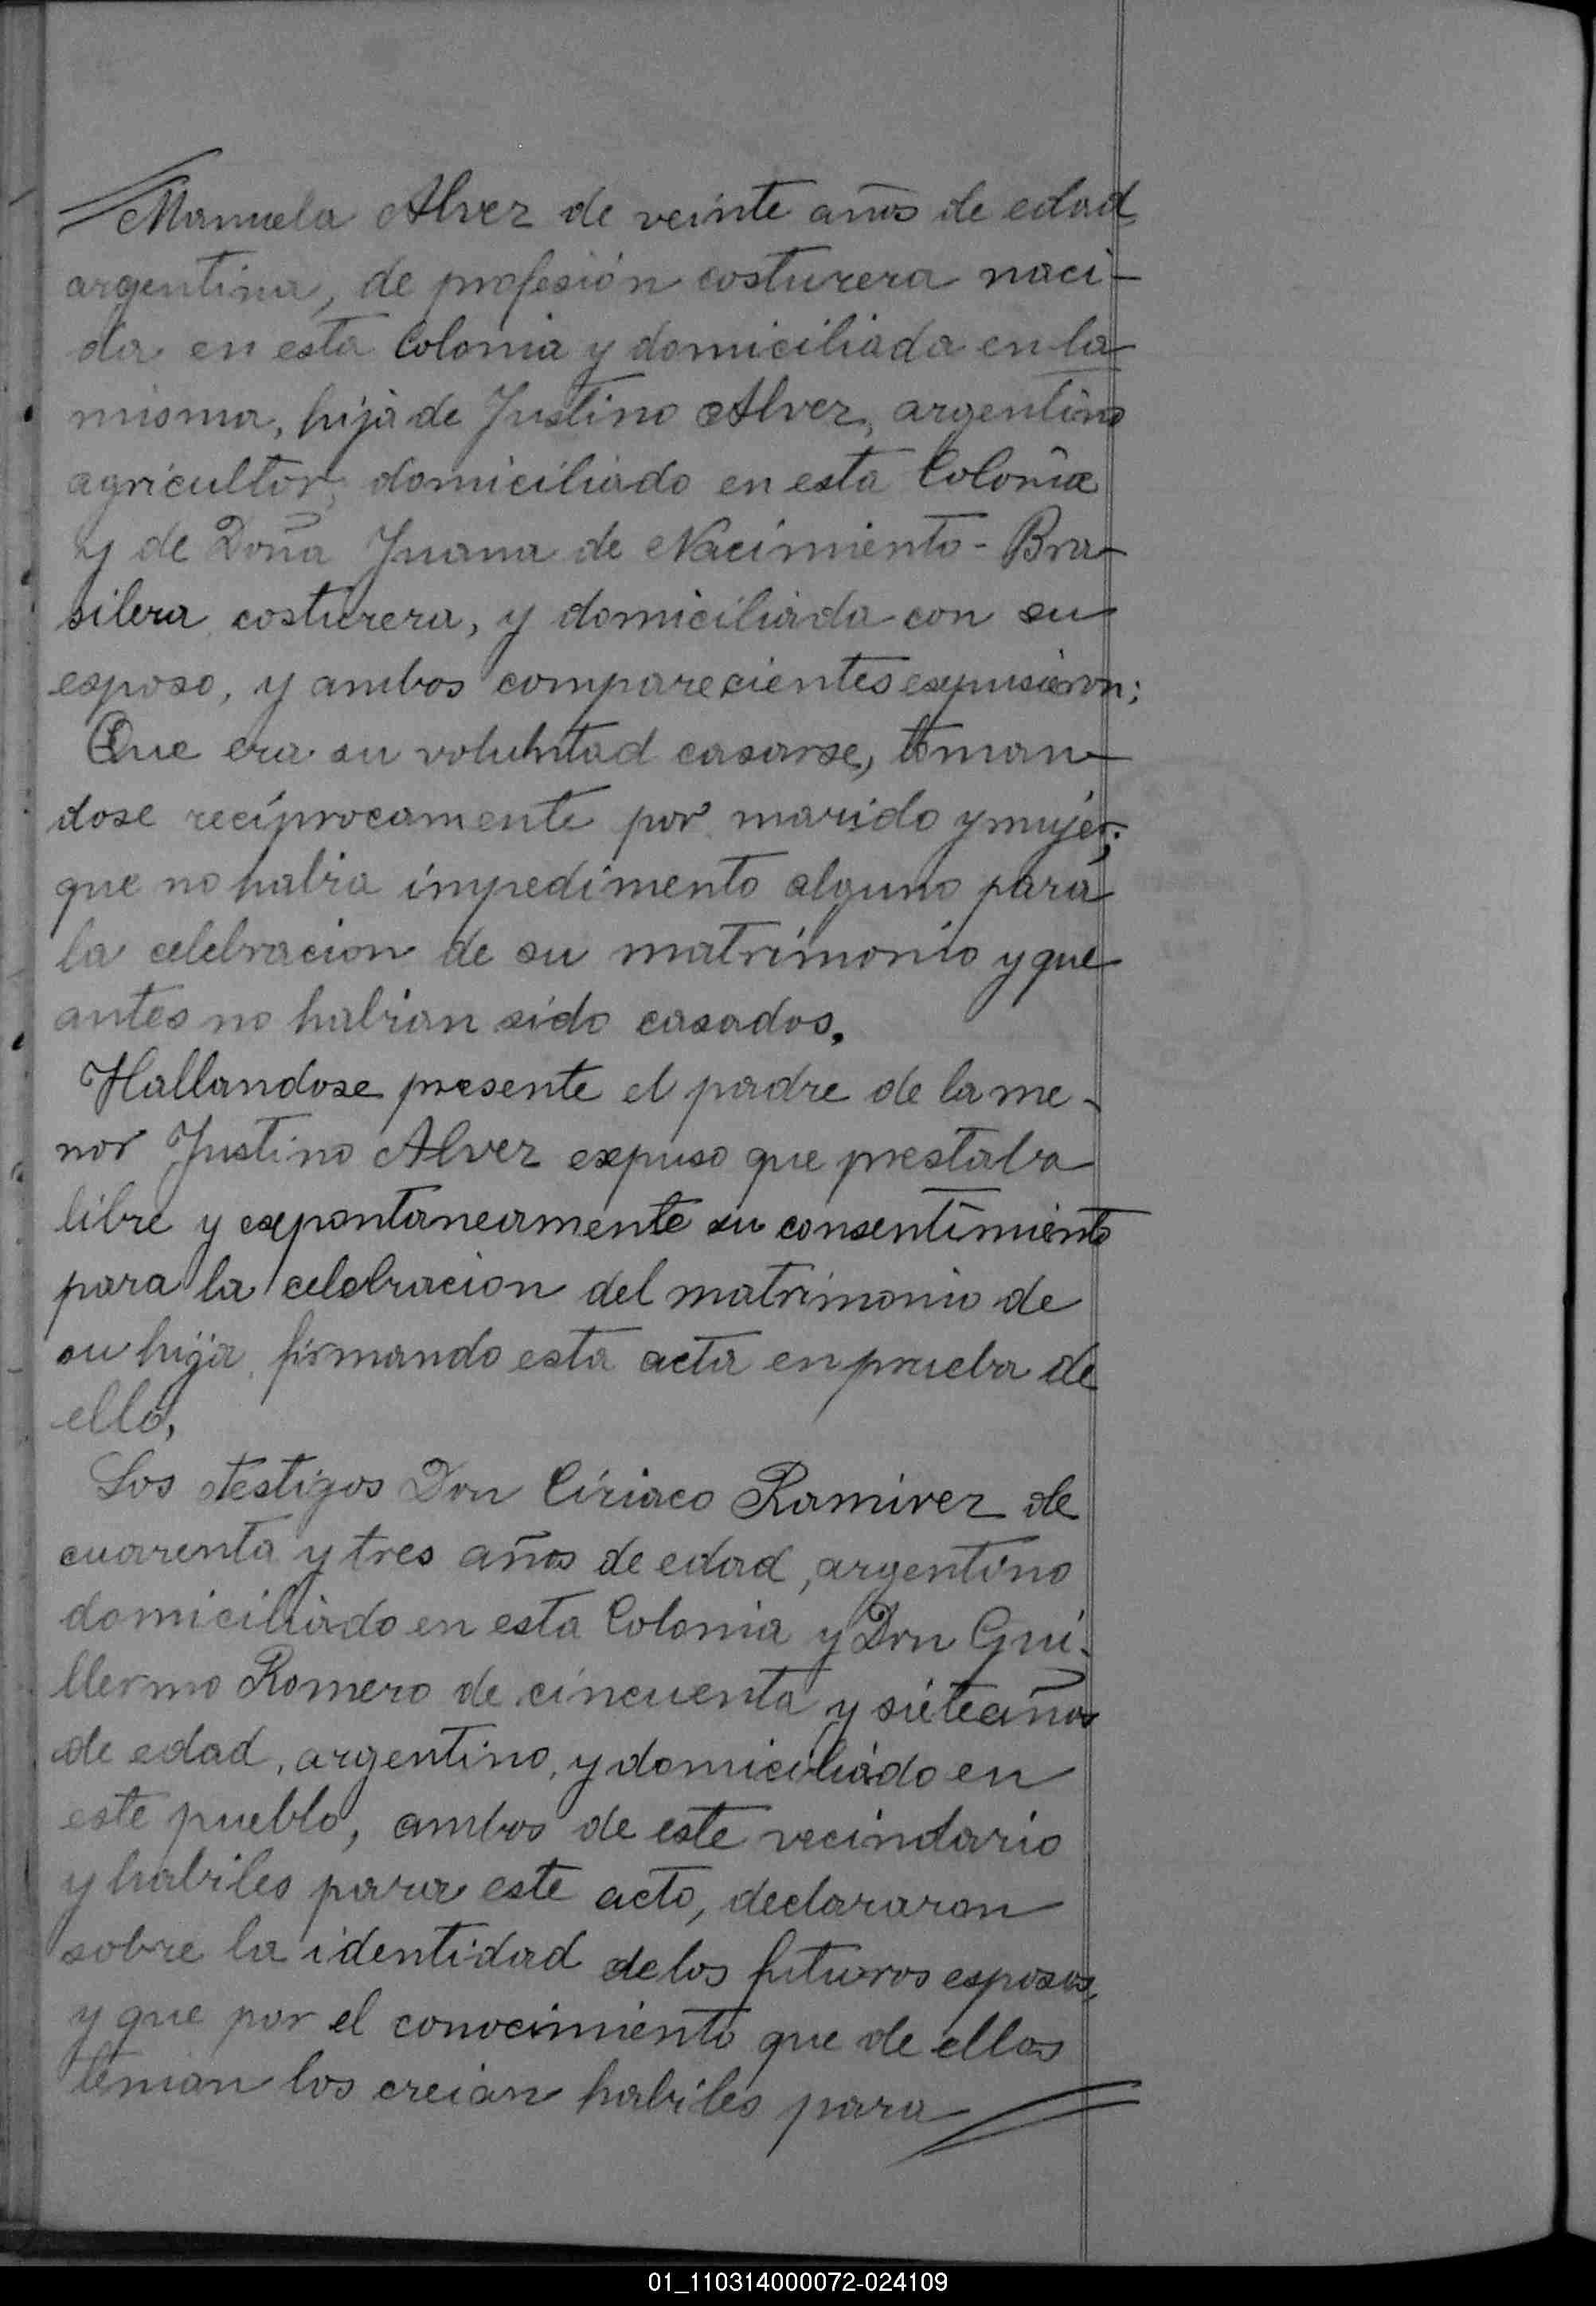 Manuela Alvez de veinte años de edad,
argentina, de profesión costurera naci-
da en esta Colonia y domiciliada en la
misma, hija de Justino Alvez, argentino
agricultor, domiciliado en esta Colonia
y de Doña Juana de Nacimiento - Bra-
silera costurera, y domiciliada con su
esposo, y ambos comparecientes expusieron:
Que era su voluntad casarse, toman-
dose recíprocamente por marido y mujer;
que no habia impedimento alguno para
la celebracion de su matrimonio y que
antes no habian sido casados.
Hallandose presente el padre de la me-
nor Justino Alvez expuso que prestaba
libre y expontaneamente su consentimiento
para la celebracion del matrimonio de
su hija, firmando esta acta en prueba de
ello,
Los testigos Don Ciriaco Ramirez de
cuarenta y tres años de edad, argentino
domiciliado en esta Colonia y Don Gui-
llermo Romero de cincuenta y siete años
de edad, argentino, y domiciliado en
este pueblo, ambos de este vecindario
y habiles para este acto, declararon
sobre la identidad de los futuros esposos,
y que por el conocimiento que de ellos
tenian los creian habiles para
01_110314000072-024109